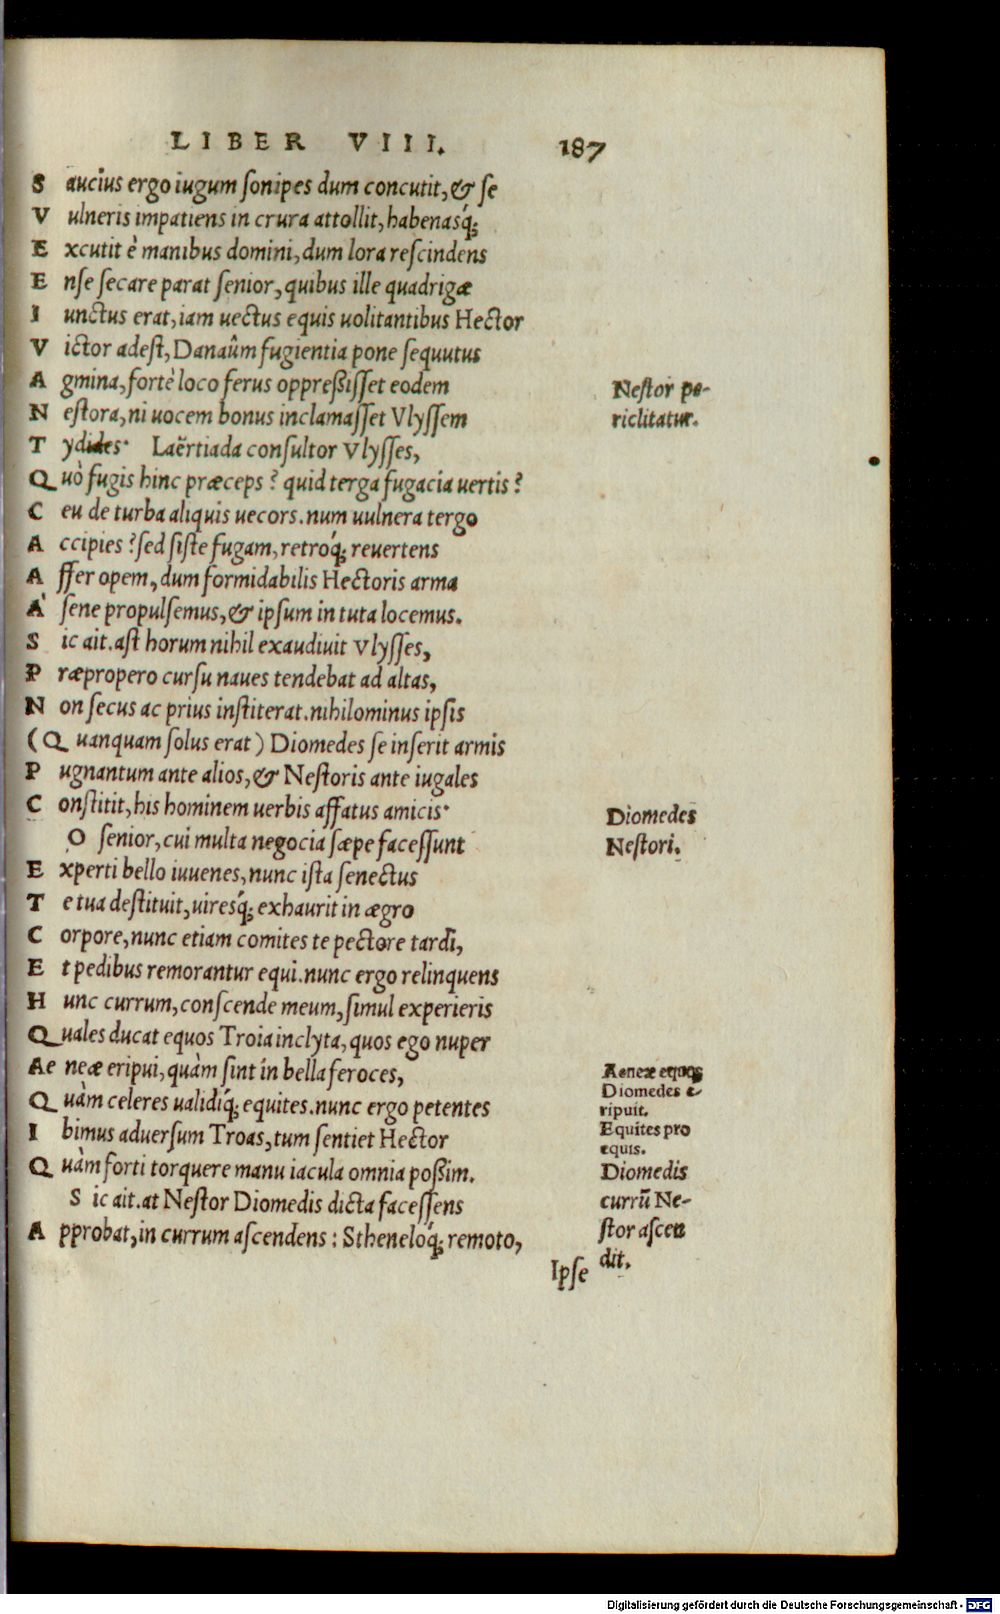 LIBER VIII. 187
Saucius ergo iugum sonipes dum concutit, & se
Vulneris impatiens in crura attollit, habenasq́;
Excutit è manibus domini, dum lora rescindens
Ense secare parat senior, quibus ille quadrigæ
Iunctus erat, iam uectus equis uolitantibus Hector
Victor adest, Danaûm fugientia pone sequutus
Agmina, fortè loco ferus oppreßisset eodem
Nestor pe-
Nestora, ni uocem bonus inclamasset Vlyssem
riclitatur.
Tydides· Laërtiada consultor Vlysses,
Quò fugis hinc præceps? quid terga fugacia uertis?
Ceu de turba aliquis uecors. num uulnera tergo
Accipies? sed siste fugam, retroq́; reuertens
Affer opem, dum formidabilis Hectoris arma
À sene propulsemus, & ipsum in tuta locemus.
Sic ait. ast horum nihil exaudiuit Vlysses,
Præpropero cursu naues tendebat ad altas,
Non secus ac prius institerat. nihilominus ipsis
(Quanquam solus erat) Diomedes se inserit armis
Pugnantum ante alios, & Nestoris ante iugales
Constitit, his hominem uerbis affatus amicis·
Diomedes
O senior, cui multa negocia sæpe facessunt
Nestori.
Experti bello iuuenes, nunc ista senectus
Te tua destituit, uiresq́; exhaurit in ægro
Corpore, nunc etiam comites te pectore tardi,
Et pedibus remorantur equi. nunc ergo relinquens
Hunc currum, conscende meum, simul experieris
Quales ducat equos Troia inclyta, quos ego nuper
Aeneæ eripui, quàm sint in bella feroces,
Aeneæ equos
Diomedes e-
Quàm celeres ualidiq́; equites. nunc ergo petentes
ripuit.
Equites pro
Ibimus aduersum Troas, tum sentiet Hector
equis.
Quàm forti torquere manu iacula omnia poßim.
Diomedis
Sic ait. at Nestor Diomedis dicta facessens
currū Ne-
Approbat, in currum ascendens: Stheneloq́; remoto,
stor ascen
dit.
Ipse
Digitalisierung gefördert durch die Deutsche Forschungsgemeinschaft - DFG